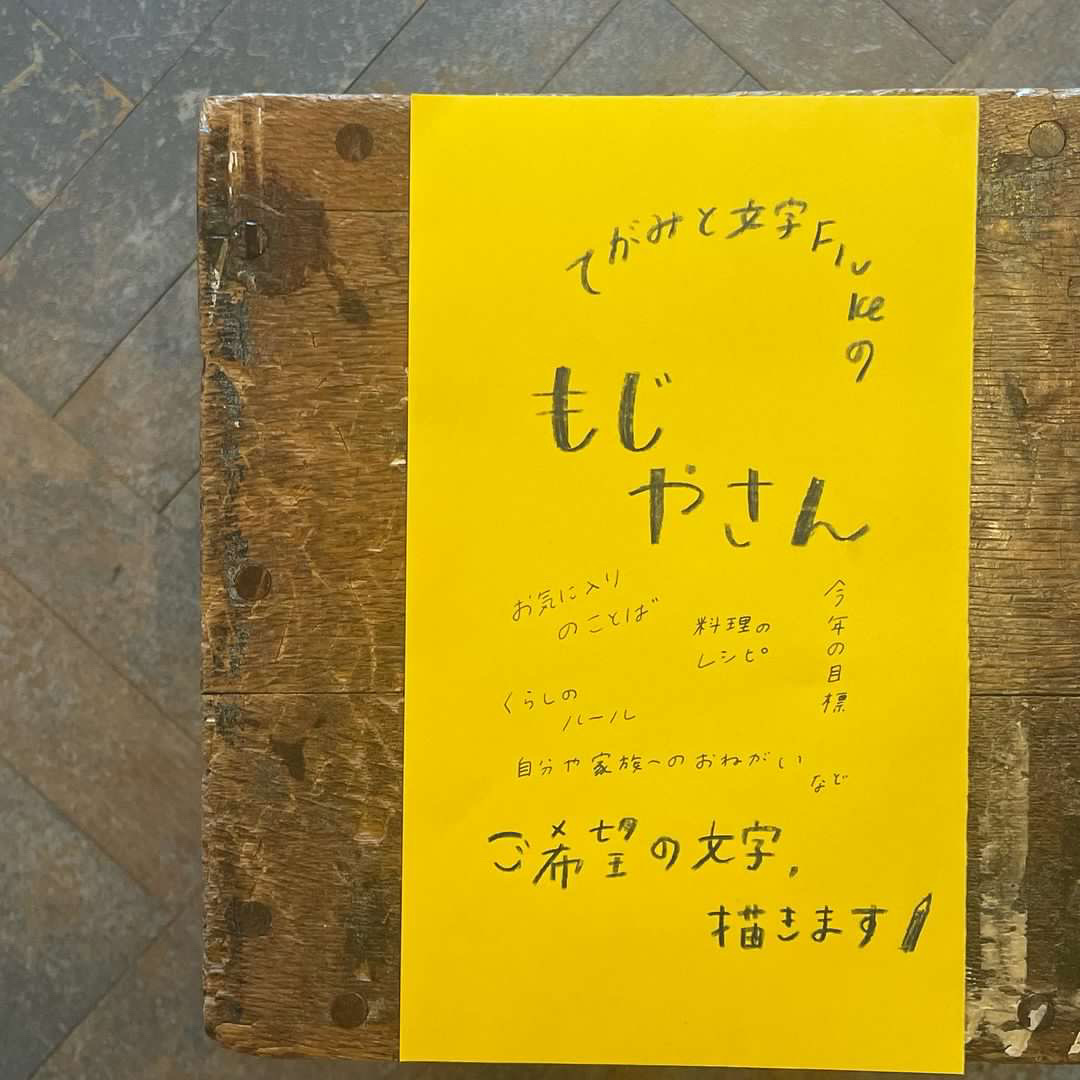 てがみと文字Flukeの
もじ
やさん
お気に入り
のことば
料理の
レシピ
今年の目標
くらしの
ルール
自分や家族へのおねがい
など
ご希望の文字、
描きます